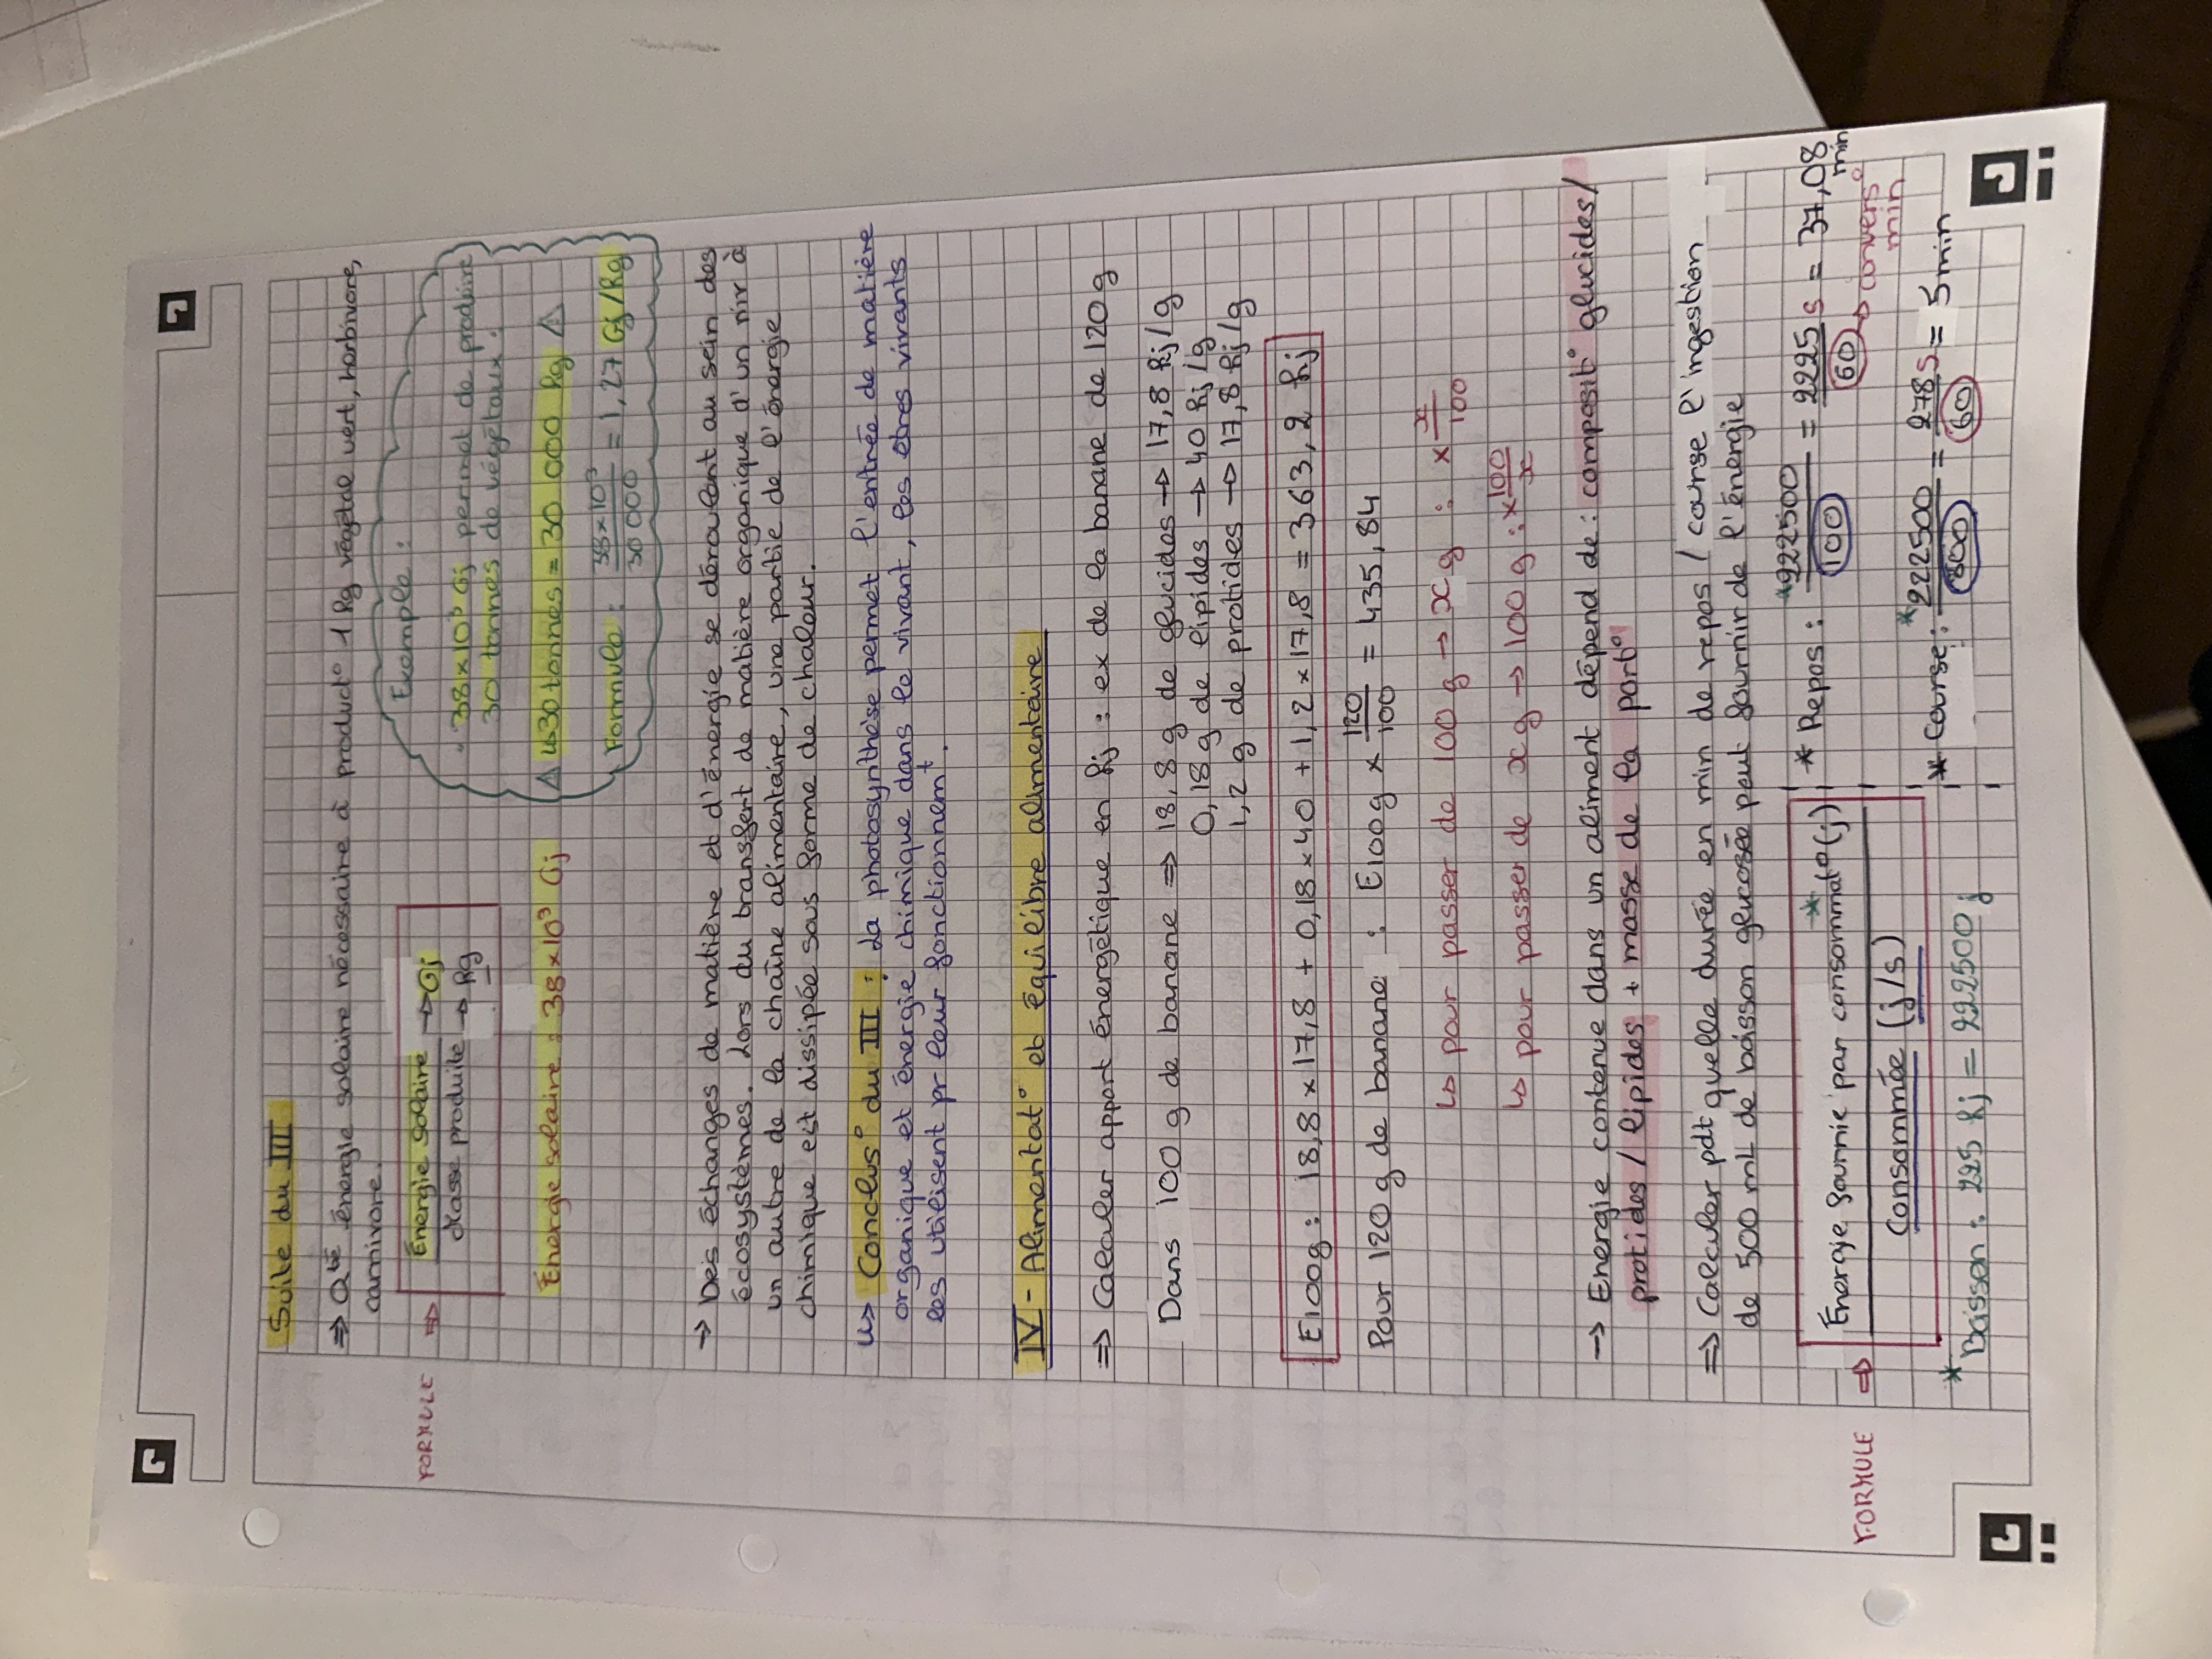 Suite du III
⇒ Qté énergie solaire nécessaire à product° 1 kg végétal vert, herbivore,
carnivore.
FORMULE ⇒ Énergie solaire → Gj
Masse produite → kg
Exemple :
"38×10³ Gj permet de produire
30 tonnes de végétaux".
Énergie solaire : 38×10³ Gj
⚠ ↳ 30 tonnes = 30 000 kg ⚠
Formule : 38×10³ / 30 000 = 1,27 Gj/kg
→ Des échanges de matière et d'énergie se déroulent au sein des
écosystèmes. Lors du transfert de matière organique d'un nir à
un autre de la chaîne alimentaire, une partie de l'énergie
chimique est dissipée sous forme de chaleur.
↳ Conclus° du III : La photosynthèse permet l'entrée de matière
organique et énergie chimique dans le vivant, les êtres vivants
les utilisent pr leur fonctionnemt.
IV - Alimentat° et équilibre alimentaire
⇒ Calculer apport énergétique en kj : ex de la banane de 120g
Dans 100 g de banane ⇒ 18,8 g de glucides → 17,8 kj/g
0,18 g de lipides → 40 kj/g
1,2 g de protides → 17,8 kj/g
E100g : 18,8 × 17,8 + 0,18 × 40 + 1,2 × 17,8 = 363,2 kj
Pour 120 g de banane : E100g × 120/100 = 435,84
↳ pour passer de 100 g → x g : × x/100
↳ pour passer de x g → 100 g : × 100/x
→ Energie contenue dans un aliment dépend de : composit° glucides/
protides / lipides + masse de la part°
⇒ Calculer pdt quelle durée en min de repos / course l'ingestion
de 500 mL de boisson glucosée peut fournir de l'énergie
FORMULE ⇒ Énergie fournie par consommat° (j) *
Consommée (j/s)
* Repos : *222500 / 100 = 2225 s / 60 = 37,08 min
→ convers° min
* Course : *222500 / 800 = 278 s / 60 = 5 min
* Boisson : 225 kj = 222500 j